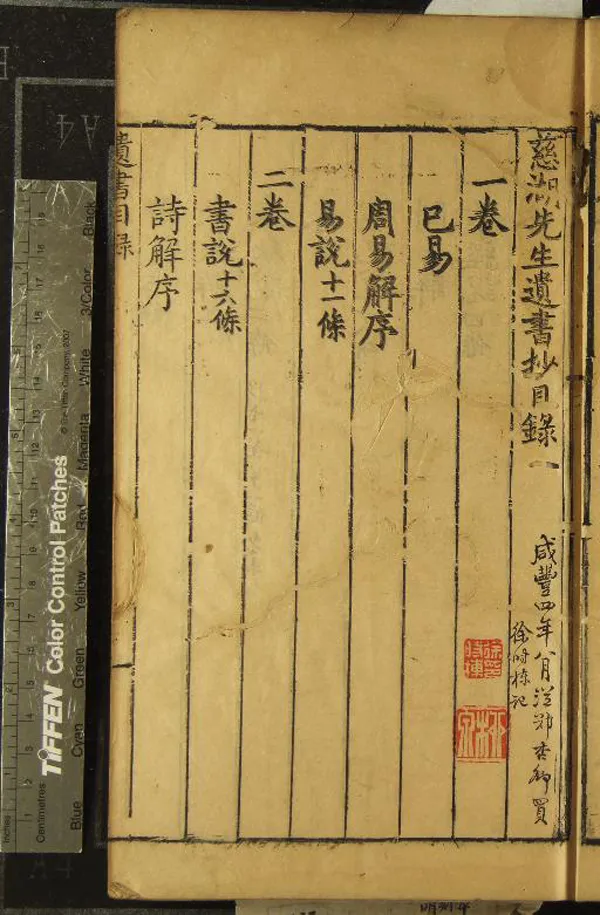 慈湖先生遺書抄目錄 一
咸豐四年八月從鄭杏卿買
徐時棟記
一卷
已易
周易解序
易說十一條
二卷
書說十六條
詩解序
遺書目錄
A4
Inches
Centimetres
TIFFEN Color Control Patches
© The Tiffen Company, 2007
Blue
Cyan
Green
Yellow
Red
Magenta
White
3/Color
Black